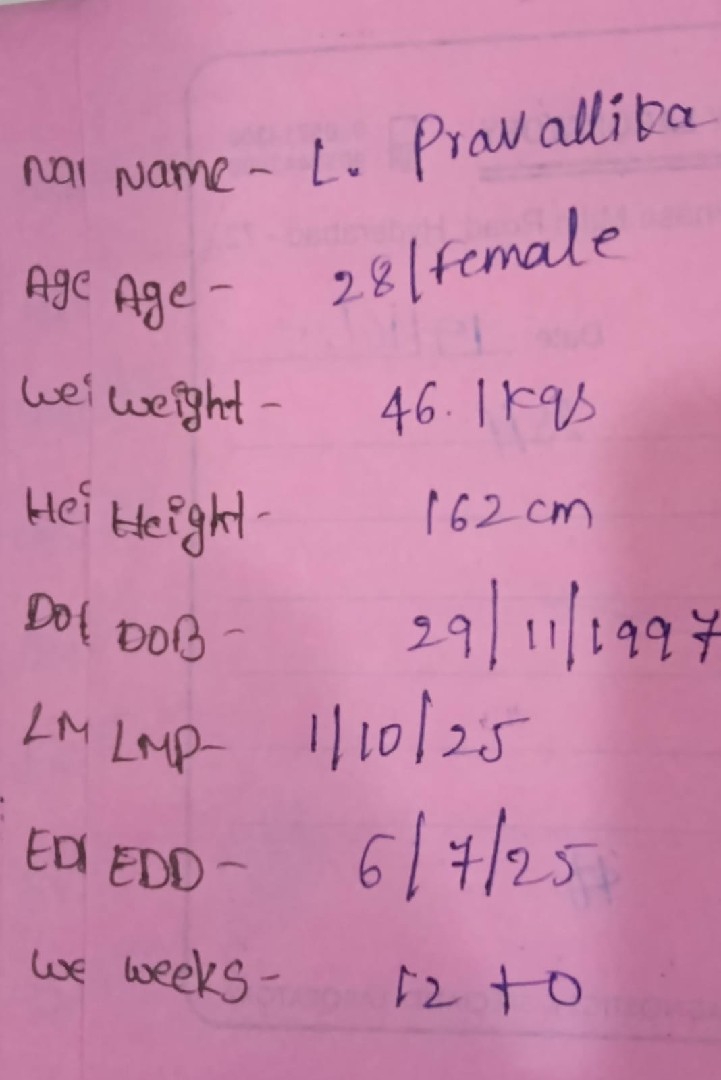 Nai Name - L. Pravallika
Age Age - 28/Female
Wei Weight - 46.1kgs
Hei Height - 162cm
DOB - 29/11/1997
LM LMP- 1/10/25
ED EDD - 6/7/25
We weeks - 12+0